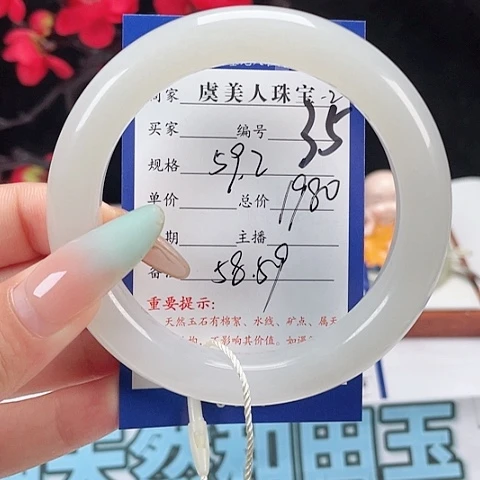 商家 虞美人珠宝-2
买家 编号 35
规格 59.2
单价 总价 1980
期 主播
备 58.59
重要提示:
天然玉石有棉絮、水线、矿点、属天
不影响其价值。如遇
天然和田玉